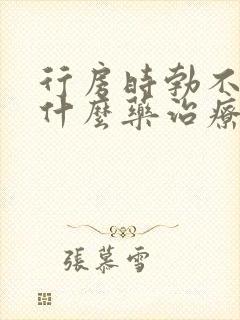 行房時勃不
什麼藥治療
張慕雪